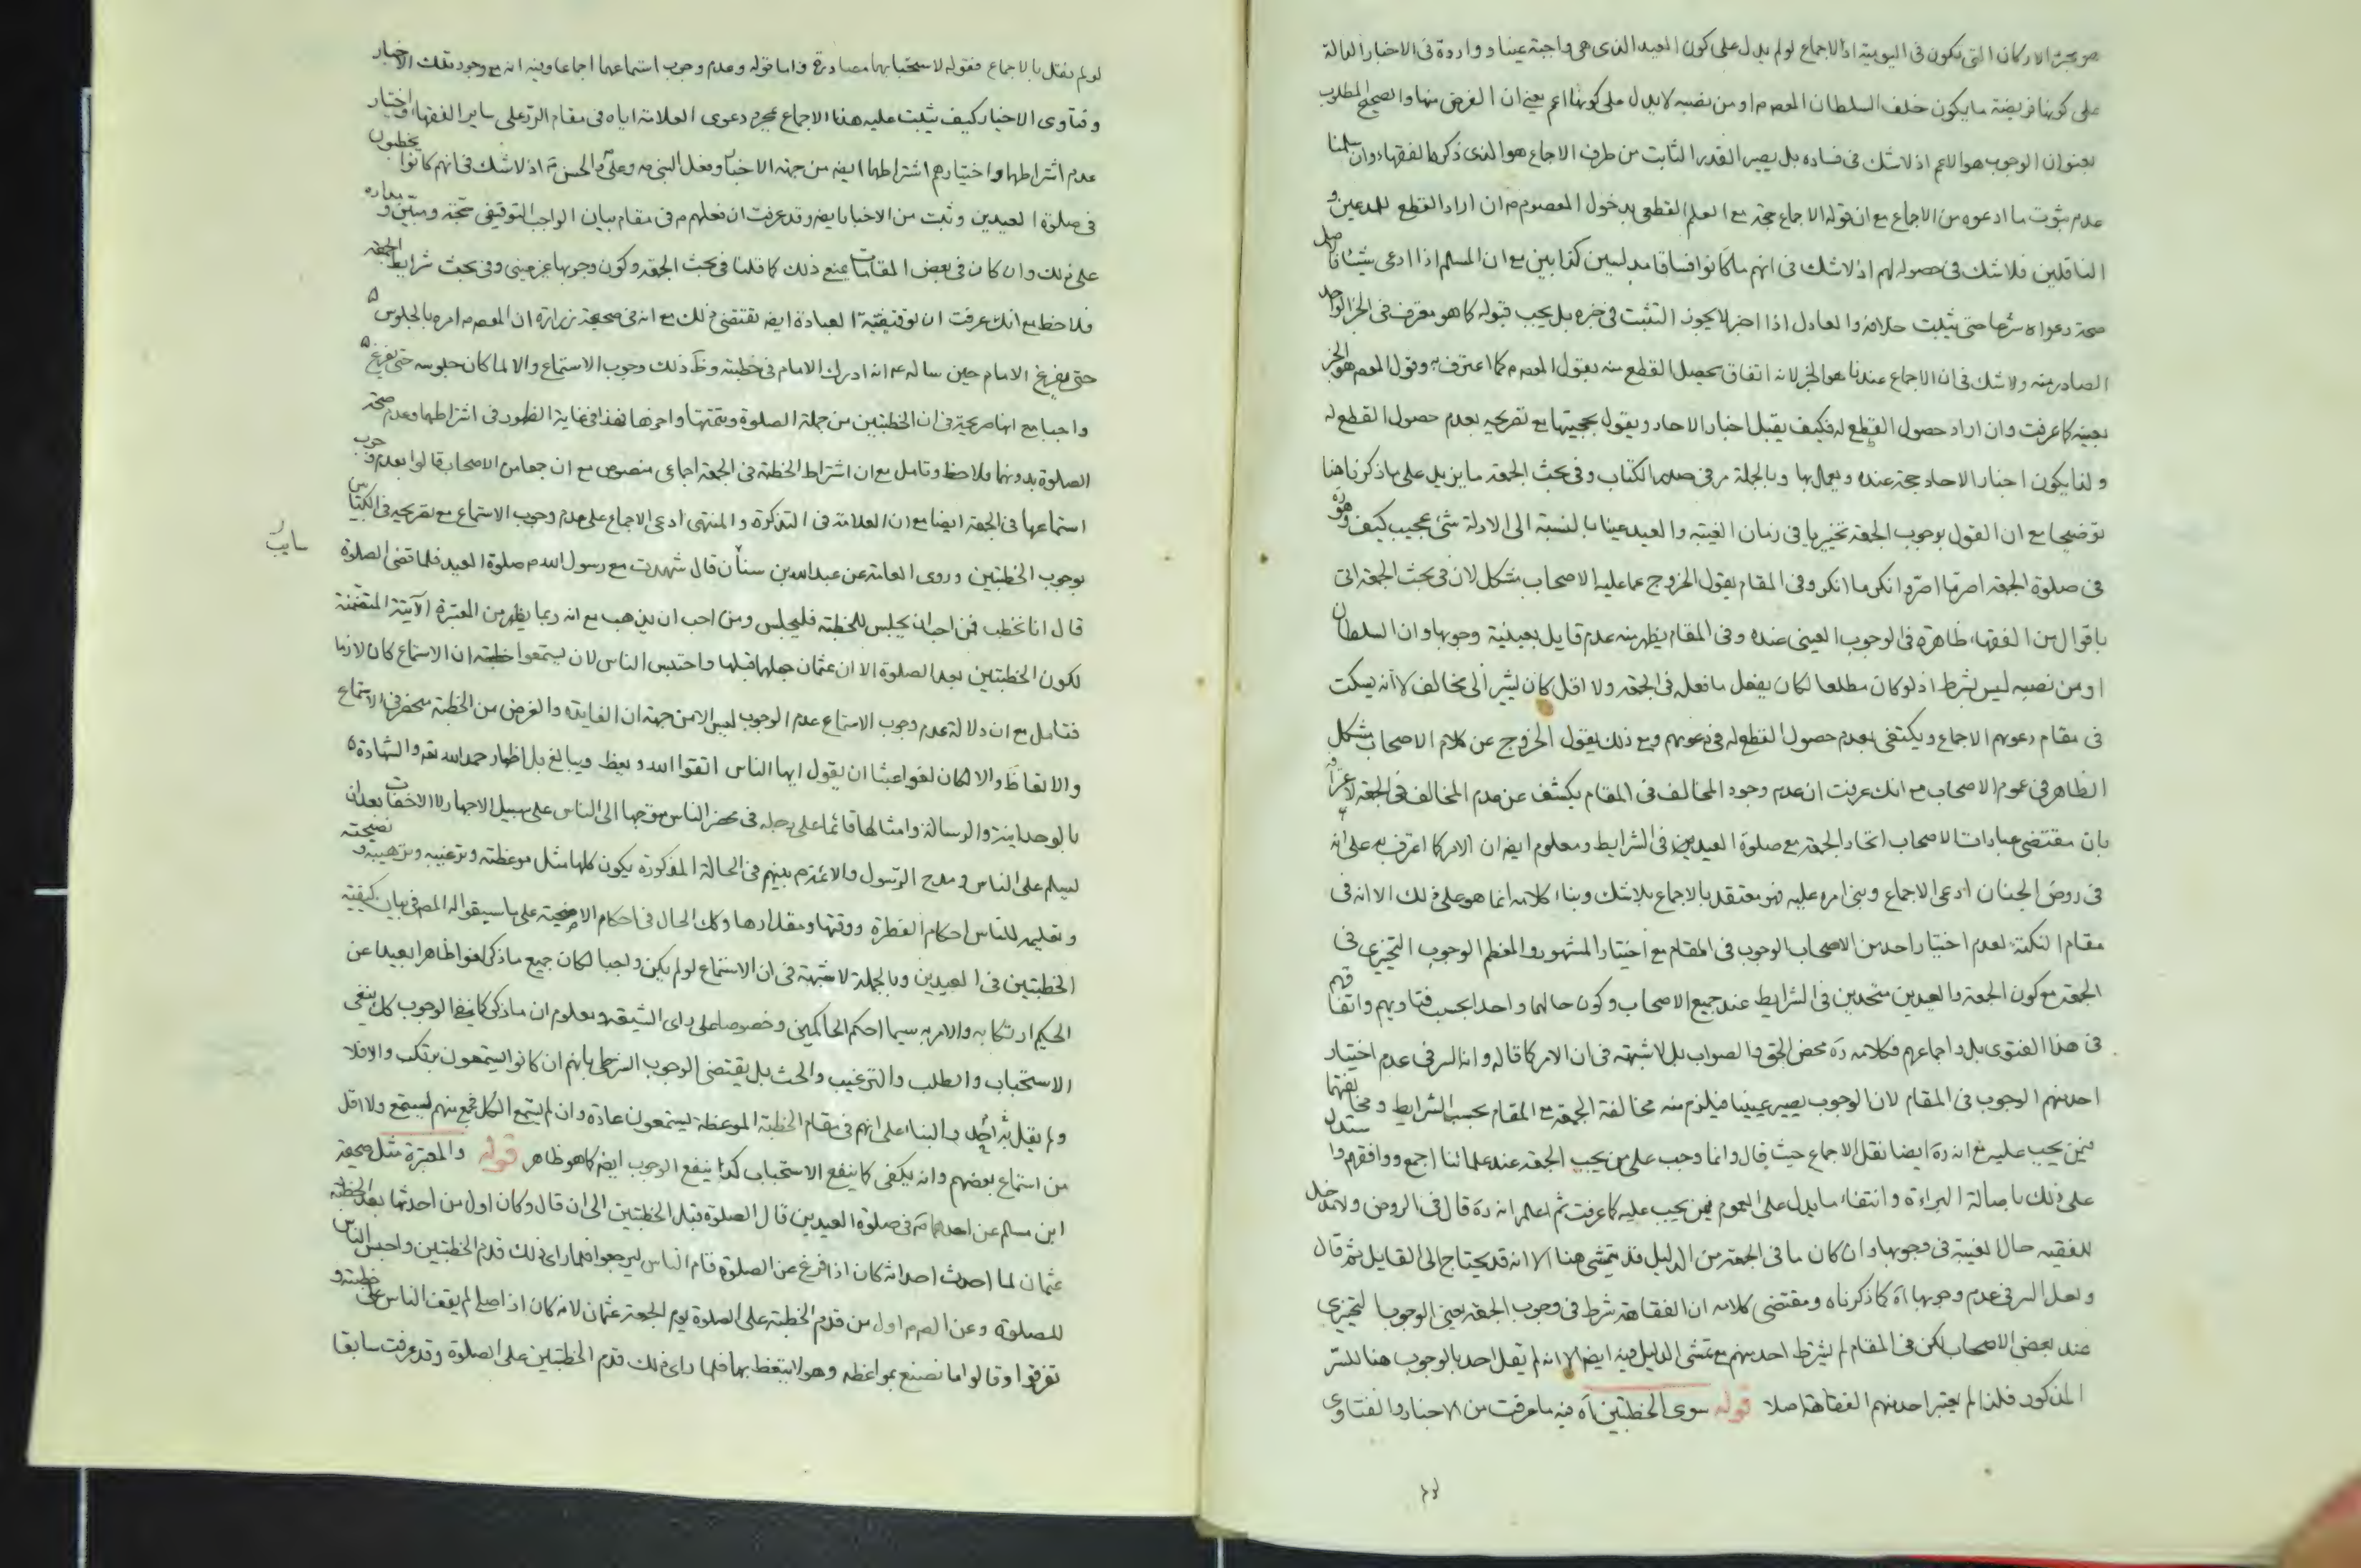 هو بجميع الاركان التى يكون فى اليومية اذ الاجماع لو لم يدل على كون العيد الذى هى واجبة عينا و واردة فى الاخبار الدالة
على كونها فريضة ما يكون خلف السلطان المعصوم او من نصبه لا يدل على كونها اعم يعنى ان الغرض منها والصحيح المطلوب
بعنوان الوجوب هو الاعم اذ لا شك فى فساده بل يصير القدر الثابت من طرف الاجماع هو الذى ذكره الفقهاء وان سلمنا
عدم ثبوت ما ادعوه من الاجماع مع ان قوله الاجماع حجة مع العلم القطعى بدخول المعصوم م ان اراد القطع للمدعين و
الناقلين فلا شك فى حصوله لهم اذ لا شك فى انهم ما كانوا فساقا مدلسين كذابين مع ان المسلم اذا ادعى شيئا فالاصل
صحة دعواه شرعا حتى يثبت خلافه والعادل اذا اخبر لا يجوز التثبت فى خبره بل يجب قبوله كما هو معرف فى الخبر الواحد
الصادر منه ولا شك فى ان الاجماع عندنا هو الخبر لانه اتفاق يحصل القطع منه بقول المعصوم م كما اعترف به وقول المعصوم هو الخبر
بعينه كما عرفت وان اراد حصول القطع له فكيف يقبل اخبار الاحاد ويقول بحجيتها مع تصريحه بعدم حصول القطع له
ولذا يكون اخبار الاحاد حجة عنده ويعمل بها وبالجملة مر فى صدر الكتاب وفى بحث الجمعة ما يزيد على ما ذكرنا هنا
توضيحا مع ان القول بوجوب الجمعة تخييريا فى زمان الغيبة والعيد عينا بالنسبة الى الادلة شئ عجيب كيف وهو ره
فى صلوة الجمعة اصر ما اصر وانكر ما انكر وفى المقام يقول الخروج عما عليه الاصحاب مشكل لان فى بحث الجمعة اتى
باقوال من الفقهاء ظاهرة فى الوجوب العينى عنده وفى المقام يظهر منه عدم قايل بعينية وجوبها وان السلطان
او من نصبه ليس بشرط اذ لو كان مطلعا لكان يفعل ما فعله فى الجمعة ولا اقل كان يشير الى مخالف لا انه يسكت
فى مقام دعويهم الاجماع ويكتفى بعدم حصول القطع له فى دعويهم ومع ذلك يقول الخروج عن كلام الاصحاب مشكل
الظاهر فى عموم الاصحاب مع انك عرفت ان عدم وجود المخالف فى المقام يكشف عن عدم المخالف فى الجمعة لاعترافه
بان مقتضى عبارات الاصحاب اتحاد الجمعة مع صلوة العيدين فى الشرايط ومعلوم ايضا ان الامر كما اعترف به على انه
فى روض الجنان ادعى الاجماع وبنى امره عليه فهو معتقد بالاجماع بلا شك وبناء كلامه انما هو على ذلك الا انه فى
مقام النكتة لعدم اختيار احد من الاصحاب الوجوب فى المقام مع اختيار المشهور والمعظم الوجوب التخييرى فى
الجمعة مع كون الجمعة والعيدين متحدين فى الشرايط عند جميع الاصحاب وكون حالهما واحدا بحسب فتاويهم واتفاقهم
فى هذا الفتوى بل واجماعهم فكلامه ره محض الحق والصواب بل لا شبهة فى ان الامر كما قاله وانه السر فى عدم اختيار
احد منهم الوجوب فى المقام لان الوجوب يصير عينيا فيلزم منه مخالفة الجمعة مع المقام بحسب الشرايط ومخالفتها
فيمن يجب عليه مع انه ره ايضا نقل الاجماع حيث قال وانما وجب على من يجب الجمعة عند علمائنا اجمع ووافقهم واستدل
على ذلك باصالة البراءة وانتفاء ما يدل على العموم فيمن يجب عليه كما عرفت ثم اعلم انه ره قال فى الروض ولا مدخل
للفقيه حال الغيبة فى وجوبها وان كان ما فى الجمعة من الدليل قد يتمشى هنا الا انه قد يحتاج الى القايل ثم قال
ولعل السر فى عدم وجوبها آه كما ذكرناه ومقتضى كلامه ان الفقاهة شرط فى وجوب الجمعة يعنى الوجوب التخييرى
عند بعض الاصحاب لكن فى المقام لم يشترط احد منهم مع تمشى الدليل فيه ايضا الا انه لم يقل احد بالوجوب هنا للسر
المذكور فلذا لم يعتبر احد منهم الفقاهة اصلا قوله سوى الخطبتين آه فيه ما عرفت من الاخبار والفتاوى
لو لم يقل بالاجماع فقوله لاستحبابهما مصادرة واما قوله وعدم وجوب استماعهما اجماعا وفيه انه مع وجود تلك الاخبار
وفتاوى الاخيار كيف يثبت عليه هذا الاجماع بمجرد دعوى العلامة اياه فى مقام الرد على ساير الفقهاء واختيار
عدم اشتراطهما واختيارهم اشتراطهما ايضا من جهة الاخبار وفعل النبى ص وعلى والحسن ع اذ لا شك فى انهم كانوا يخطبون
فى صلوة العيدين وثبت من الاخبار ايضا وقد عرفت ان فعلهم م فى مقام بيان الواجب التوقيفى حجة ومبين و مداره
على ذلك وان كان فى بعض المقامات يمنع ذلك كما قلنا فى بحث الجمعة وكون وجوبها غير عينى وفى بحث شرايط الجمعة
فلاحظ مع انك عرفت ان توقيفية العبادة ايضا تقتضى ذلك مع انه فى صحيحة زرارة ان المعصوم م امره بالجلوس
حتى يفرغ الامام حين سأله عمن ادرك الامام فى خطبته وظ ذلك وجوب الاستماع والا لما كان جلوسه حتى يفرغ
واجبا مع انها صريحة فى ان الخطبتين من جملة الصلوة وتتمتها واخرها فهذا فى غاية الظهور فى اشتراطهما وعدم صحة
الصلوة بدونهما فلاحظ وتامل مع ان اشتراط الخطبة فى الجمعة اجماعى منصوص مع ان جمعا من الاصحاب قالوا بعدم وجوب
استماعها فى الجمعة ايضا مع ان العلامة فى التذكرة والمنتهى ادعى الاجماع على عدم وجوب الاستماع مع تصريحه فى الكتابين
بوجوب الخطبتين وروى العامة عن عبد الله بن سنان قال شهدت مع رسول الله م صلوة العيد فلما قضى الصلوة
سايب
قال انا نخطب فمن احب ان يجلس للخطبة فليجلس ومن احب ان يذهب مع انه ربما يظهر من المعتبرة الآتية المتضمنة
لكون الخطبتين بعد الصلوة الا ان عثمان جعلها قبلها واحتبس الناس لان يستمعوا خطبته ان الاستماع كان لازما
فتامل مع ان دلالة عدم وجوب الاستماع عدم الوجوب ليس الا من جهة ان الفايدة والغرض من الخطبة منحصر فى الاستماع
والاتعاظ والا لكان لغوا عبثا ان يقول ايها الناس اتقوا الله ويعظ ويبالغ بل اظهار حمد الله تعه والشهادة
بالوحدانية والرسالة وامثالها قائما على رجله فى محضر الناس متوجها الى الناس على سبيل الاجهار لا الاخفات بعد ان
ليسلم على الناس ومدح الرسول والائمة م بينهم فى الحالة المذكورة يكون كلها مثل موعظته وترغيبه وترهيبه و نصيحته
وتعليمه للناس احكام الفطرة ووقتها ومقدارها وكك الحال فى احكام الاضحية على ما سيقوله المص فى بيان كيفية
الخطبتين فى العيدين وبالجملة لا شبهة فى ان الاستماع لو لم يكن واجبا لكان جميع ما ذكر لغوا ظاهرا بعيدا عن
الحكيم ارتكابه والامر به سيما احكم الحاكمين وخصوصا على راى الشيعة ومعلوم ان ما ذكر كما ينفى الوجوب كك ينفى
الاستحباب والطلب والترغيب والحث بل يقتضى الوجوب الشرطى بانهم ان كانوا يستمعون يرتكب والا فلا
ولم يقل به احد والبناء على انهم فى مقام الخطبة الموعظة يستمعون عادة وان لم يستمع الكل فجمع منهم يستمع ولا اقل
من استماع بعضهم وانه يكفى كما ينفع الاستحباب كذا ينفع الوجوب ايضا كما هو ظاهر قوله والمعتبرة مثل صحيحة
ابن مسلم عن احدهما ع فى صلوة العيدين قال الصلوة قبل الخطبتين الى ان قال وكان اول من احدثها بعد الخطبة
عثمان لما احدث احداثه كان اذا فرغ عن الصلوة قام الناس ليرجعوا فلما راى ذلك قدم الخطبتين واحبس الناس
للصلوة وعن الص م اول من قدم الخطبة على الصلوة يوم الجمعة عثمان لانه كان اذا صلى لم يقف الناس على خطبته و
تفرقوا وقالوا ما نصنع بمواعظه وهو لا يتعظ بها فلما راى ذلك قدم الخطبتين على الصلوة وقد عرفت سابقا